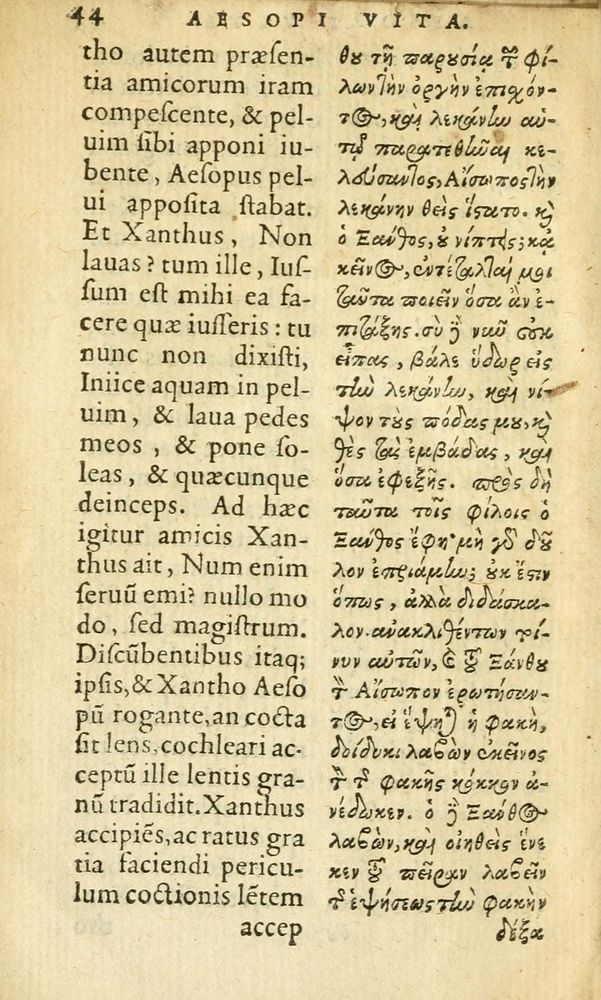 44 AESOPI VITA.
tho autem præſen-
tia amicorum iram
compeſcente, & pel-
uim ſibi apponi iu-
bente, Aeſopus pel-
ui appoſita ſtabat.
Et Xanthus, Non
lauas? tum ille, Iuſ-
ſum eſt mihi ea fa-
cere quæ iuſſeris: tu
nunc non dixiſti,
Iniice aquam in pel-
uim, & laua pedes
meos, & pone ſo-
leas, & quæcunque
deinceps. Ad hæc
igitur amicis Xan-
thus ait, Num enim
ſeruū emi? nullo mo
do, ſed magiſtrum.
Diſcūbentibus itaq;
ipſis, & Xantho Aeſo
pū rogante, an cocta
ſit lens, cochleari ac-
ceptū ille lentis gra-
nū tradidit. Xanthus
accipiēs, ac ratus gra
tia faciendi pericu-
lum coctionis lētem
accep
θου τῇ παρουσίᾳ τῶν φί-
λων τὴν ὀργὴν ἐπιχόν-
τος, καὶ λεκάνην αὐ-
τῷ παρατεθῆναι κε-
λεύσαντος, Αἴσωπος τὴν
λεκάνην θεὶς ἵστατο. καὶ
ὁ Ξάνθος, οὐ νίπτεις; κἀ
κεῖνος, ἐντέταλταί μοι
ταῦτα ποιεῖν ὅσα ἂν ἐ-
πιτάξῃς. σὺ δὲ νῦν οὐκ
εἶπας, βάλε ὕδωρ εἰς
τὴν λεκάνην, καὶ νί-
ψον τοὺς πόδας μου, καὶ
θὲς τὰς ἐμβάδας, καὶ
ὅσα ἐφεξῆς. πρὸς δὴ
ταῦτα τοῖς φίλοις ὁ
Ξάνθος ἔφη· μὴ γὰρ δοῦ
λον ἐπριάμην; οὐκ ἔστιν
ὅπως, ἀλλὰ διδάσκα-
λον. ἀνακλιθέντων τοί-
νυν αὐτῶν, καὶ τοῦ Ξάνθου
τὸν Αἴσωπον ἐρωτήσαν-
τος, εἰ ἕψηται ἡ φακῆ,
δοίδυκι λαβὼν ἐκεῖνος
τὸν τῆς φακῆς κόκκον ἀ-
νέδωκεν. ὁ δὲ Ξάνθος
λαβὼν, καὶ οἰηθεὶς ἕνε
κεν τοῦ πεῖραν λαβεῖν
τῆς ἑψήσεως τὴν φακῆν
δέξα